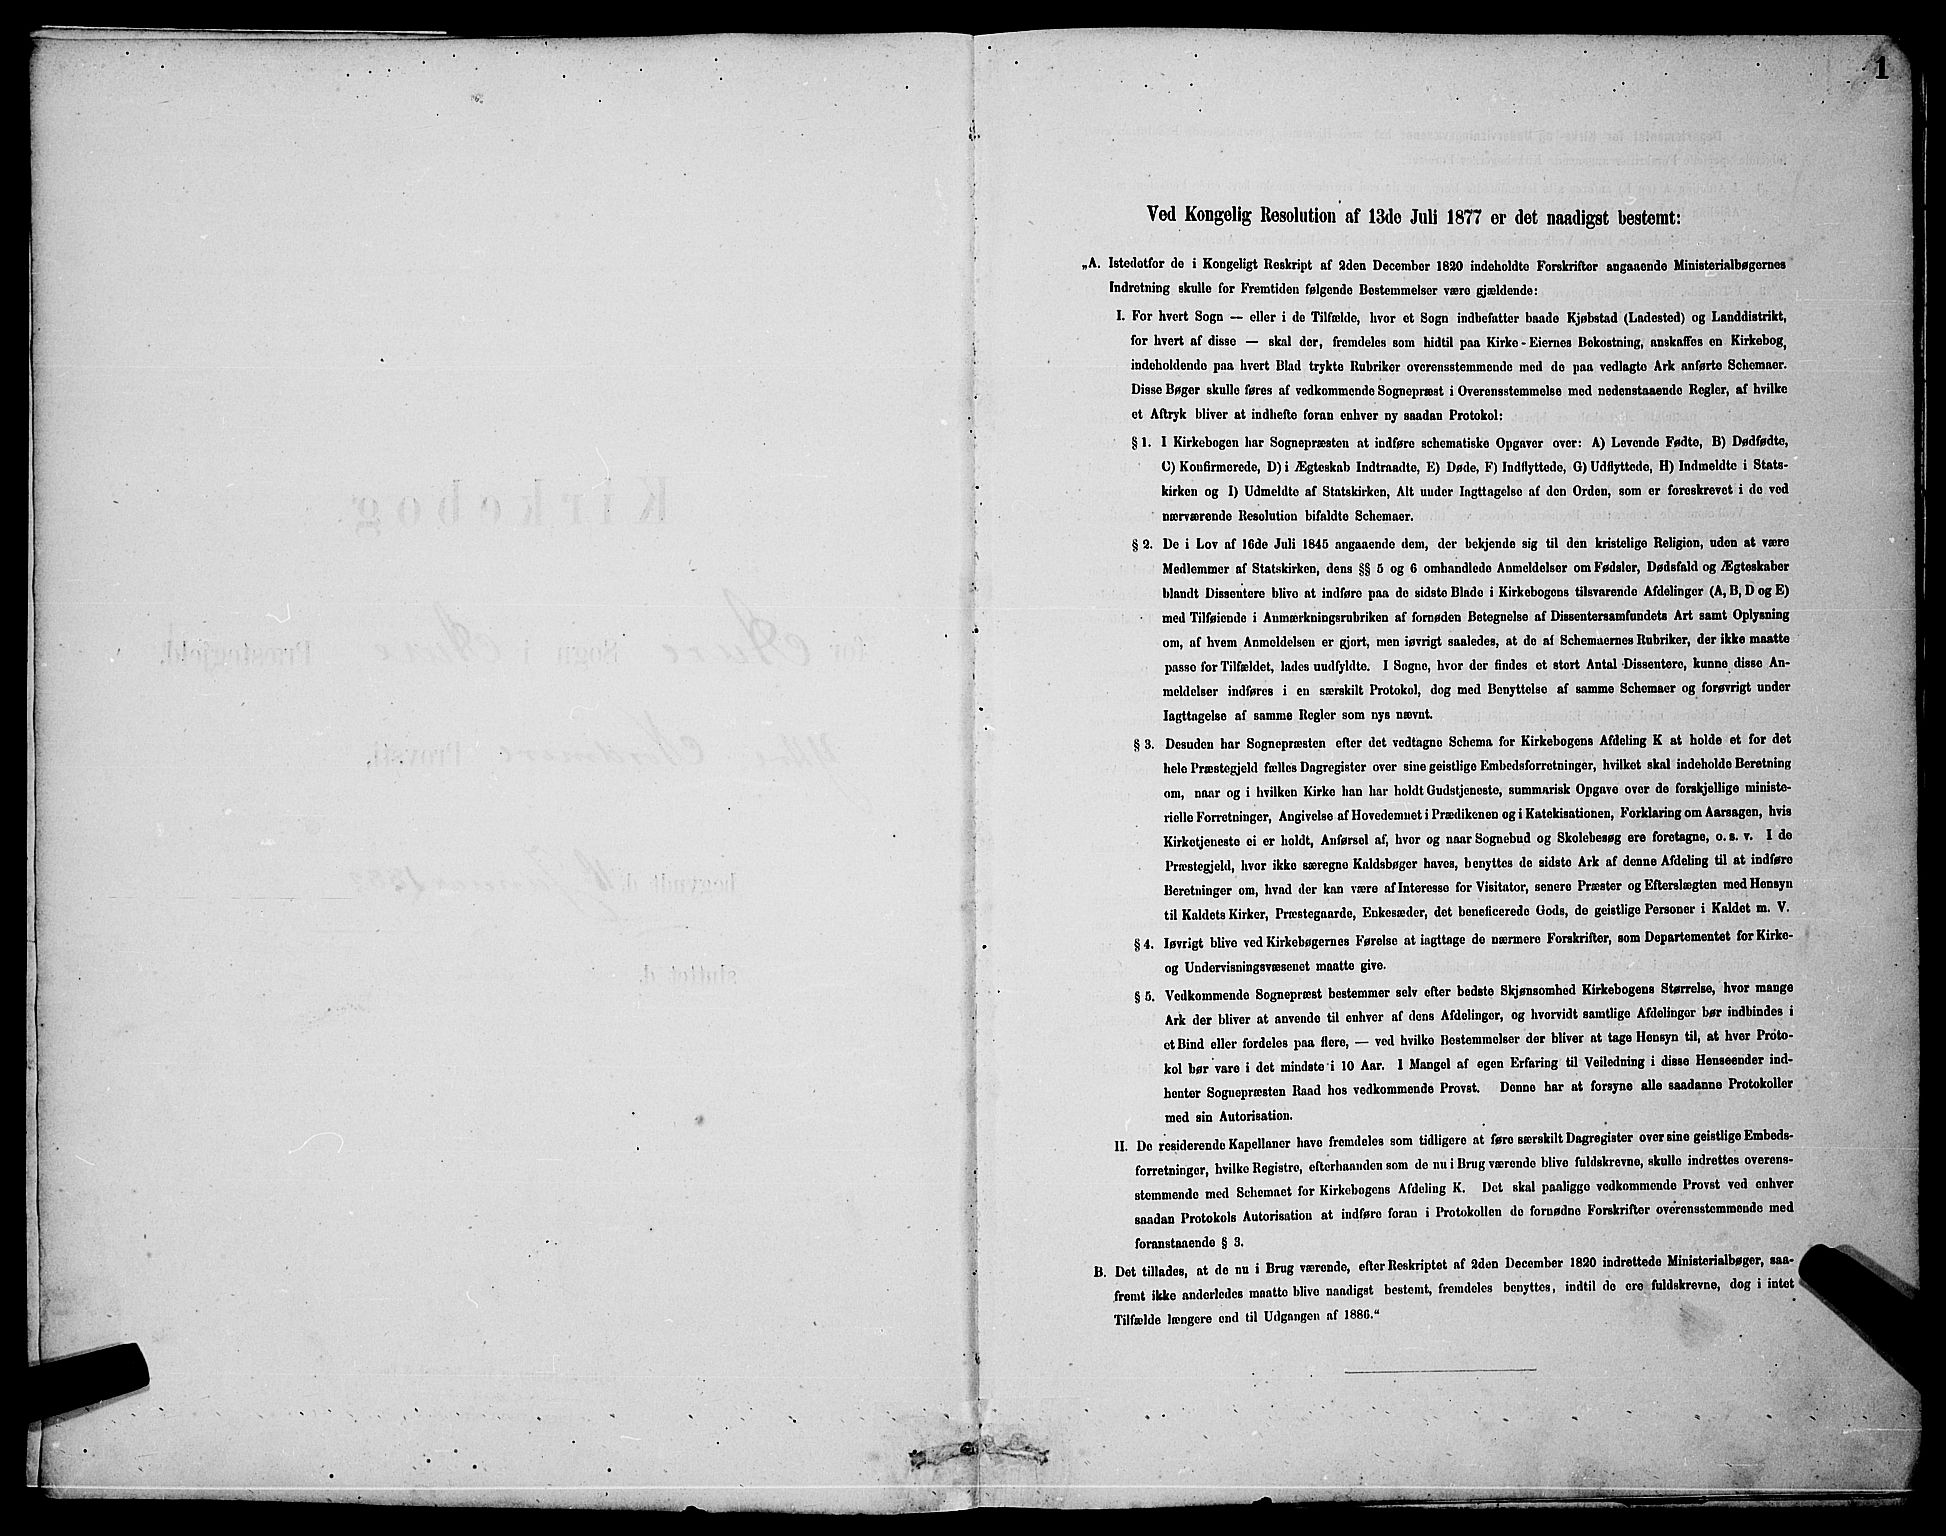 1
Ved Kongelig Resolution af 13de Juli 1877 er det naadigst bestemt:
„A. Istedetfor de i Kongeligt Reskript af 2den December 1820 indeholdte Forskrifter angaaende Ministerialbøgernes
Indretning skulle for Fremtiden følgende Bestemmelser være gjældende:
I. For hvert Sogn — eller i de Tilfælde, hvor et Sogn indbefatter baade Kjøbstad (Ladested) og Landdistrikt,
for hvert af disse — skal der, fremdeles som hidtil paa Kirke-Eiernes Bekostning, anskaffes en Kirkebog,
indeholdende paa hvert Blad trykte Rubriker overensstemmende med de paa vedlagte Ark anførte Schemaer.
Disse Bøger skulle føres af vedkommende Sognepræst i Overensstemmelse med nedenstaaende Regler, af hvilke
et Aftryk bliver at indhefte foran enhver ny saadan Protokol:
§ 1. I Kirkebogen har Sognepræsten at indføre schematiske Opgaver over: A) Levende Fødte, B) Dødfødte,
C) Konfirmerede, D) i Ægteskab Indtraadte, E) Døde, F) Indflyttede, G) Udflyttede, H) Indmeldte i Stats-
kirken og I) Udmeldte af Statskirken, Alt under Iagttagelse af den Orden, som er foreskrevet i de ved
nærværende Resolution bifaldte Schemaer.
§ 2. De i Lov af 16de Juli 1845 angaaende dem, der bekjende sig til den kristelige Religion, uden at være
Medlemmer af Statskirken, dens §§ 5 og 6 omhandlede Anmeldelser om Fødsler, Dødsfald og Ægteskaber
blandt Dissentere blive at indføre paa de sidste Blade i Kirkebogens tilsvarende Afdelinger (A, B, D og E)
med Tilføiende i Anmærkningsrubriken af fornøden Betegnelse af Dissentersamfundets Art samt Oplysning
om, af hvem Anmeldelsen er gjort, men iøvrigt saaledes, at de af Schemaernes Rubriker, der ikke maatte
passe for Tilfældet, lades uudfyldte. I Sogne, hvor der findes et stort Antal Dissentere, kunne disse An-
meldelser indføres i en særskilt Protokol, dog med Benyttelse af samme Schemaer og forøvrigt under
Iagttagelse af samme Regler som nys nævnt.
§ 3. Desuden har Sognepræsten efter det vedtagne Schema for Kirkebogens Afdeling K at holde et for det
hele Præstegjeld fælles Dagregister over sine geistlige Embedsforretninger, hvilket skal indeholde Beretning
om, naar og i hvilken Kirke han har holdt Gudstjeneste, summarisk Opgave over de forskjellige ministe-
rielle Forretninger, Angivelse af Hovedemnet i Prædikenen og i Katekisationen, Forklaring om Aarsagen, hvis
Kirketjeneste ei er holdt, Anførsel af, hvor og naar Sognebud og Skolebesøg ere foretagne, o. s. v. I de
Præstegjeld, hvor ikke særegne Kaldsbøger haves, benyttes de sidste Ark af denne Afdeling til at indføre
Beretninger om, hvad der kan være af Interesse for Visitator, senere Præster og Efterslægten med Hensyn
til Kaldets Kirker, Præstegaarde, Enkesæder, det beneficerede Gods, de geistlige Personer i Kaldet m. V.
§ 4. Iøvrigt blive ved Kirkebøgernes Førelse at iagttage de nærmere Forskrifter, som Departementet for Kirke-
og Undervisningsvæsenet maatte give.
§ 5. Vedkommende Sognepræst bestemmer selv efter bedste Skjønsomhed Kirkebogens Størrelse, hvor mange
Ark der bliver at anvende til enhver af dens Afdelinger, og hvorvidt samtlige Afdelinger bør indbindes i
et Bind eller fordeles paa flere, — ved hvilke Bestemmelser der bliver at tage Hensyn til, at hver Proto-
kol bør vare i det mindste i 10 Aar. I Mangel af egen Erfaring til Veiledning i disse Henseender ind-
henter Sognepræsten Raad hos vedkommende Provst. Denne har at forsyne alle saadanne Protokoller
med sin Autorisation.
II. De residerende Kapellaner have fremdeles som tidligere at føre særskilt Dagregister over sine geistlige Embeds-
forretninger, hvilke Registre, efterhaanden som de nu i Brug værende blive fuldskrevne, skulle indrettes overens-
stemmende med Schemaet for Kirkebogens Afdeling K. Det skal paaligge vedkommende Provst ved enhver
saadan Protokols Autorisation at indføre foran i Protokollen de fornødne Forskrifter overensstemmende med
foranstaaende § 3.
B. Det tillades, at de nu i Brug værende, efter Reskriptet af 2den December 1820 indrettede Ministerialbøger, saa-
fremt ikke anderledes maatte blive naadigst bestemt, fremdeles benyttes, indtil de ere fuldskrevne, dog i intet
Tilfælde længere end til Udgangen af 1886.“
Kirkebog
for Aure Sogn i Aure Præstegjeld.
Nordmøre Provsti,
begyndt d.
sluttet d.